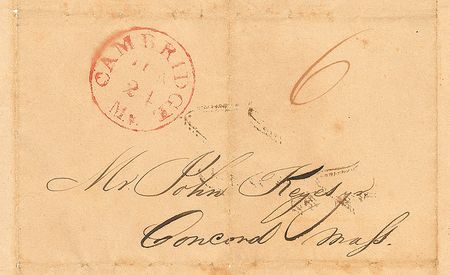 CAMBRIDGE
24
Ms
6
Mr John Keyes jr
Concord Mass.